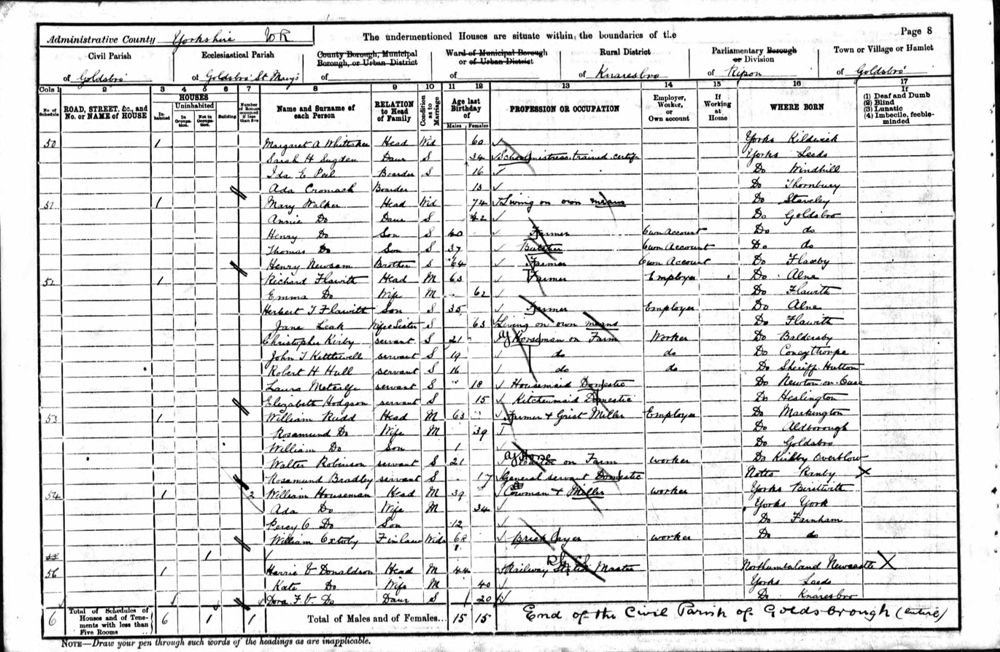 Administrative County Yorkshire WR
The undermentioned Houses are situate within the boundaries of the
Page 8
Civil Parish
of Goldsbro'
Ecclesiastical Parish
of Goldsbro' St Mary's
County Borough, Municipal Borough, or Urban District
of
Ward of Municipal Borough or of Urban District
of
Rural District
of Knaresbro
Parliamentary Borough or Division
of Ripon
Town or Village or Hamlet
of Goldsbro'
Cols 1 2 3 4 5 6 7 8 9 10 11 12 13 14 15 16 17
No. of Schedule
ROAD, STREET, &c., and No. or NAME of HOUSE
HOUSES
Inhabited
Uninhabited
In Occupation
Not in Occupation
Building
Number of Rooms occupied if less than five
Name and Surname of each Person
RELATION to Head of Family
Condition as to Marriage
Age last Birthday of
Males Females
PROFESSION OR OCCUPATION
Employer, Worker, or Own account
If Working at Home
WHERE BORN
If (1) Deaf and Dumb (2) Blind (3) Lunatic (4) Imbecile, feeble-minded
50 1 Margaret A Whittaker Head Wid 60 Yorks Kildwick
Sarah H Sugden Daur S 34 Schoolmistress trained certif Yorks Leeds
Ida E Peel Boarder S 16 Do Windhill
Ada Cromack Boarder 13 Do Thornbury
51 1 Mary Walker Head Wid 74 Living on own means Do Staveley
Annie Do Daur S 42 Do Goldsbro
Henry Do Son S 40 Farmer Own Account Do do
Thomas Do Son S 37 Butcher Own Account Do do
Henry Newsam Brother S 64 Farmer Own Account Do Flaxby
52 1 Richard Flawith Head M 63 Farmer Employer Do Alne
Emma Do Wife M 62 Do Flawith
Herbert T Flawith Son S 35 Farmer Employer Do Alne
Jane Leak Wifes Sister S 63 Living on own means Do Flawith
Christopher Kirby servant S 21 Horseman on Farm Worker Do Baldersby
John T Kettlewell servant S 19 do do Do Coneythorpe
Robert H Hull servant S 16 do do Do Sheriff Hutton
Laura Metcalfe servant S 18 Housemaid Domestic Do Newton on Ouse
Elizabeth Hodgson servant S 15 Kitchenmaid Domestic Do Healington
53 1 William Rudd Head M 63 Farmer & Grist Miller Employer Do Markington
Rosamund Do Wife M 39 Do Aldborough
William Do Son 1 Do Goldsbro
Walter Robinson servant S 21 on Farm worker Do Kirkby Overblow
Rosamund Bradley servant S 17 General servant Domestic Notts Ranby X
54 1 2 William Houseman Head M 39 Cowman & Miller worker Yorks Birstwith
Ada Do Wife M 34 Yorks York
Percy C Do Son 12 Do Farnham
William Extoby F in law Wid 68 Brick layer worker Do do
1
56 1 Harris V Donaldson Head M 44 Railway Station Master Northumberland Newcastle X
Kate Do Wife M 40 Yorks Leeds
Dora F. V. Do Daur S 20 Do Knaresbro
6 Total of Schedules of Houses and of Tenements with less than Five Rooms 6 1 1 Total of Males and of Females... 15 15 End of the Civil Parish of Goldsbrough (entire)
NOTE—Draw your pen through such words of the headings as are inapplicable.